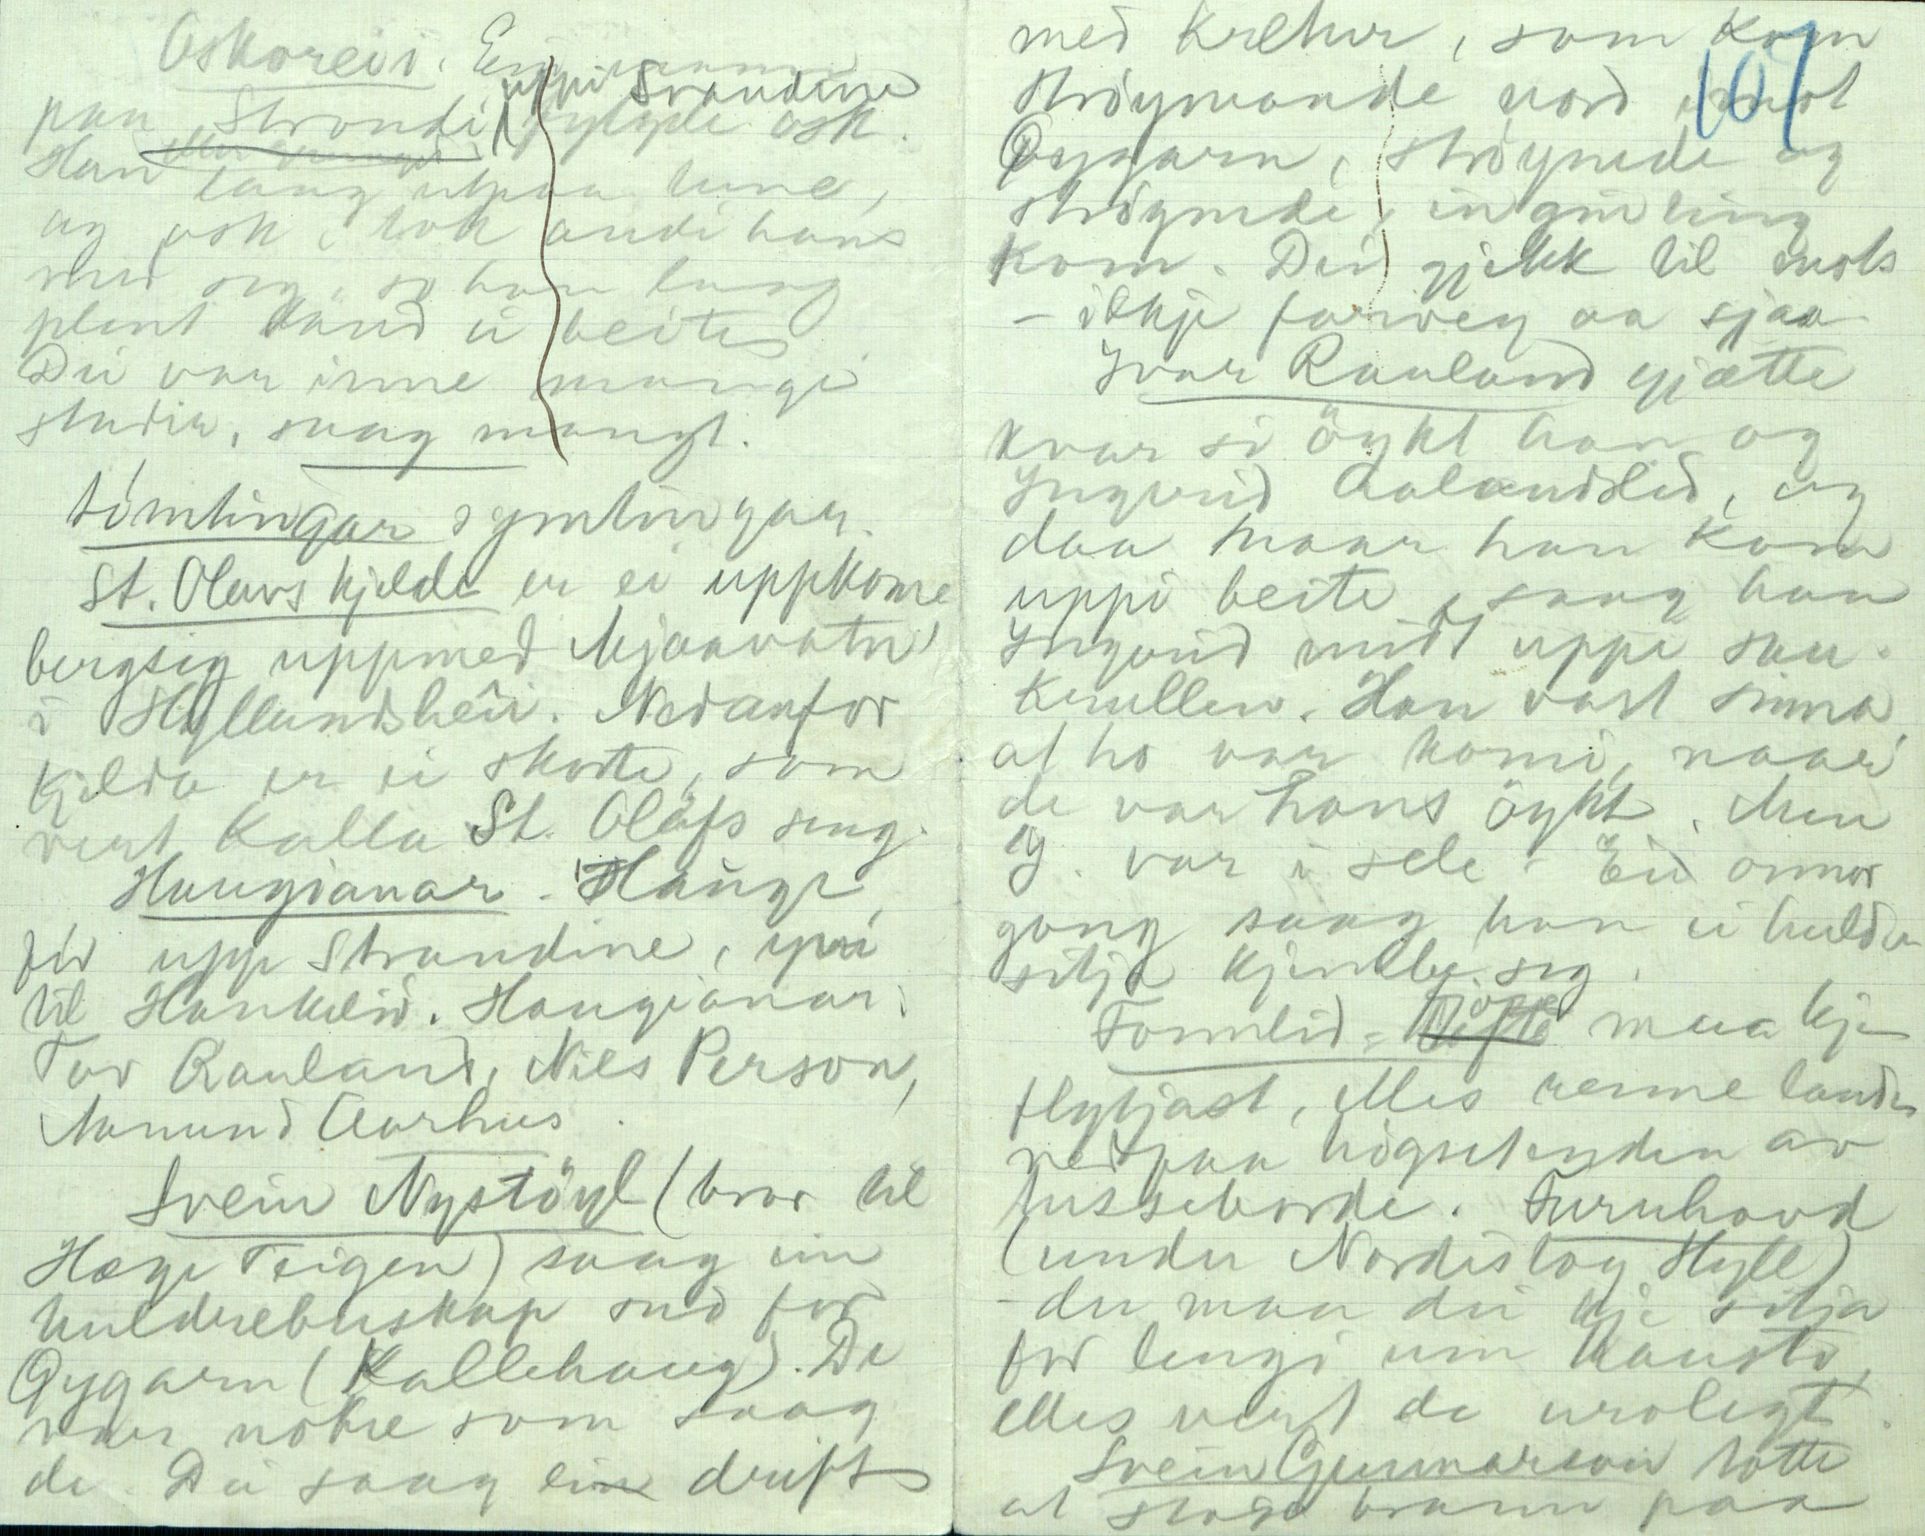 Oskorei i. Ein mann
uppi Strandine
paa Strondi fylgde osk.
Han laag utpaa tune,
og osk. tok andi hans
med seg, so han laag
plent daud ei beite.
Dei var inne mangei
stadir, saag mangt.
timlingar symlingar.
St. Olavs kjelda er ei uppkome
bergsig uppmed Mjaavatn
i Hyllandshei. Nedanfor
kjelda er ei skorte, som
vert kalla St. Olafs seng.
Haugianar. Hauge
fór upp Strandine, yvi
til Haukelid. Haugianar:
Tor Rauland, Nils Person,
Aamund Aarhus.
Svein Nystöyl (bror til
Hæge Teigen) saag ein
huldrebuskap sud for
Gygarn (Kallehaug). De
var nokre som saag
de. Dei saag ein drift
med kretur, som kom
ströymande nord imot
Gygarn, ströymde og
ströymde, ingin ting
kom. Dei gjekk til mots
- ikkje farveg aa sjaa
Ivar Rauland gjætte
kvar si öykt han og
Ingerid Aalandslid, og
daa maar han kom
uppi beite, saag han
Ingerid midt uppi sau-
knullen. Han vart sinna
at ho var komi, naar
de var hans öykt. Men
I. var i sele. Ein onnor
gong saag han ei huldre
sitja kjembe seg.
Tomlid = Tjöpe maa kje
flytjast, elles renne landn
ned paa högsetenden av
tusseborde. Furuhovd
(under Nordistog Hyll)
- der maa dei kje sitja
for lengi um hausto,
elles vert de uroligt.
Svein Gunnarson totte
at stogo brann paa